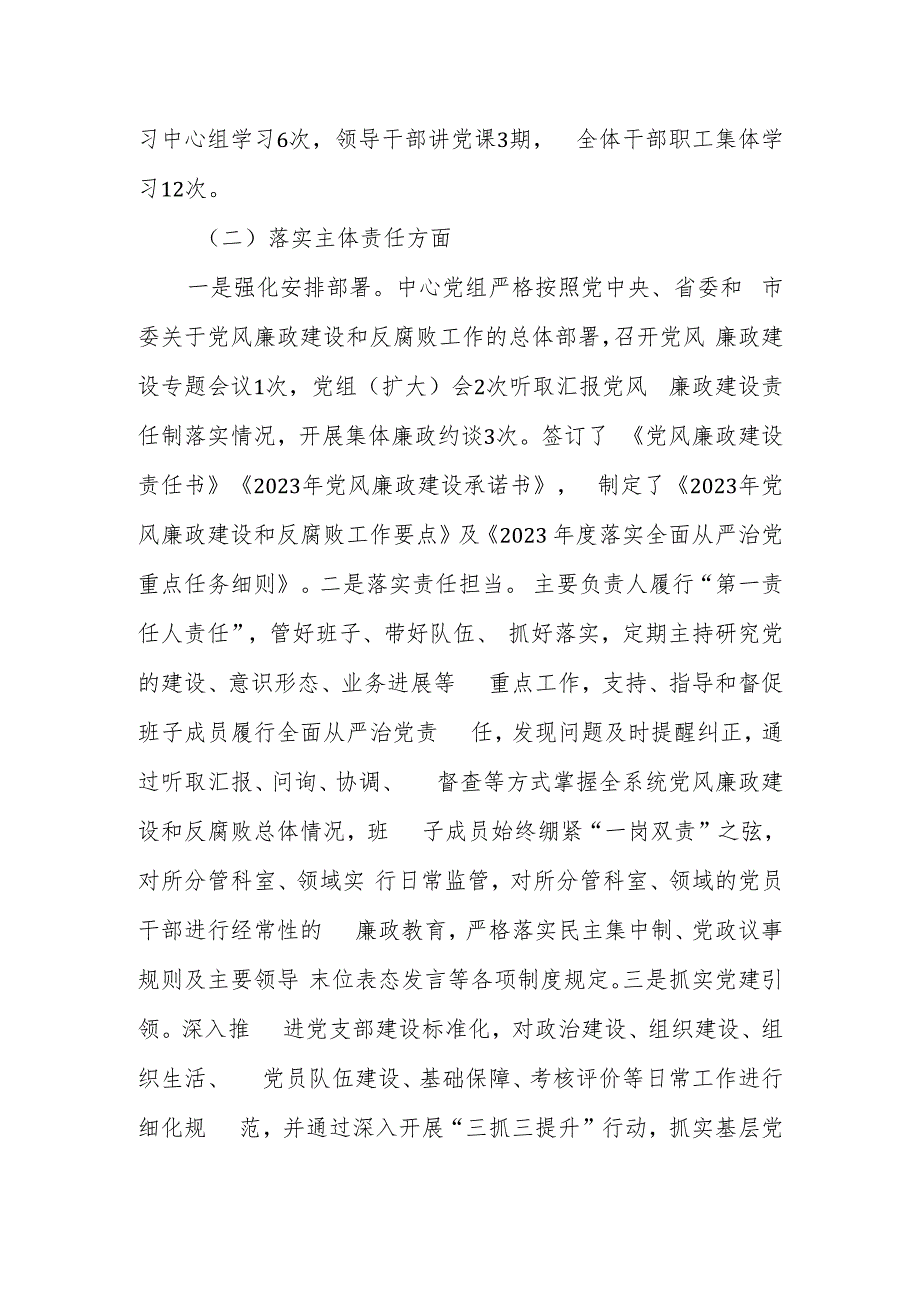 习中心组学习6次，领导干部讲党课3期， 全体干部职工集体学
习12次。
（二）落实主体责任方面
一是强化安排部署。中心党组严格按照党中央、省委和 市
委关于党风廉政建设和反腐败工作的总体部署，召开党风 廉政建
设专题会议1次，党组（扩大）会2次听取汇报党风 廉政建设责
任制落实情况，开展集体廉政约谈3次。签订了 《党风廉政建设
责任书》《2023年党风廉政建设承诺书》， 制定了《2023年党
风廉政建设和反腐败工作要点》及《2023 年度落实全面从严治党
重点任务细则》。二是落实责任担当。 主要负责人履行“第一责
任人责任”，管好班子、带好队伍、 抓好落实，定期主持研究党
的建设、意识形态、业务进展等 重点工作，支持、指导和督促
班子成员履行全面从严治党责 任，发现问题及时提醒纠正，通
过听取汇报、问询、协调、 督查等方式掌握全系统党风廉政建
设和反腐败总体情况，班 子成员始终绷紧“一岗双责”之弦，
对所分管科室、领域实 行日常监管，对所分管科室、领域的党员
干部进行经常性的 廉政教育，严格落实民主集中制、党政议事
规则及主要领导 末位表态发言等各项制度规定。三是抓实党建引
领。深入推 进党支部建设标准化，对政治建设、组织建设、组
织生活、 党员队伍建设、基础保障、考核评价等日常工作进行
细化规 范，并通过深入开展“三抓三提升”行动，抓实基层党